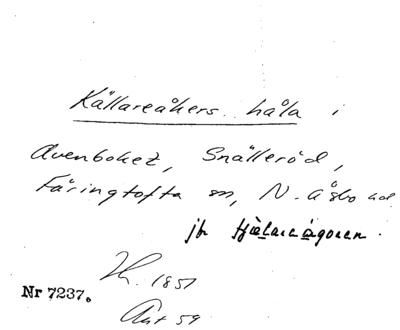 Källareåkers håla i
Avenboket, Snälleröd,
Färingtofta sn, N. Åsbo hd
jfr
H. 1851
Nr 7237.
Ant 59